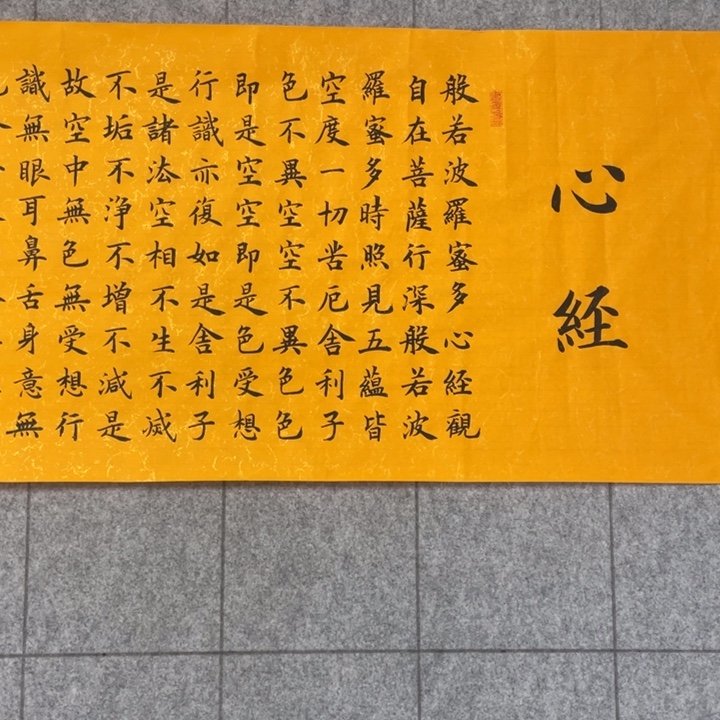 心經
般若波羅蜜多心經觀
自在菩薩行深般若波
羅蜜多時照見五蘊皆
空度一切苦厄舍利子
色不異空空不異色色
即是空空即是色受想
行識亦復如是舍利子
是諸法空相不生不滅
不垢不淨不增不減是
故空中無色無受想行
識無眼耳鼻舌身意無